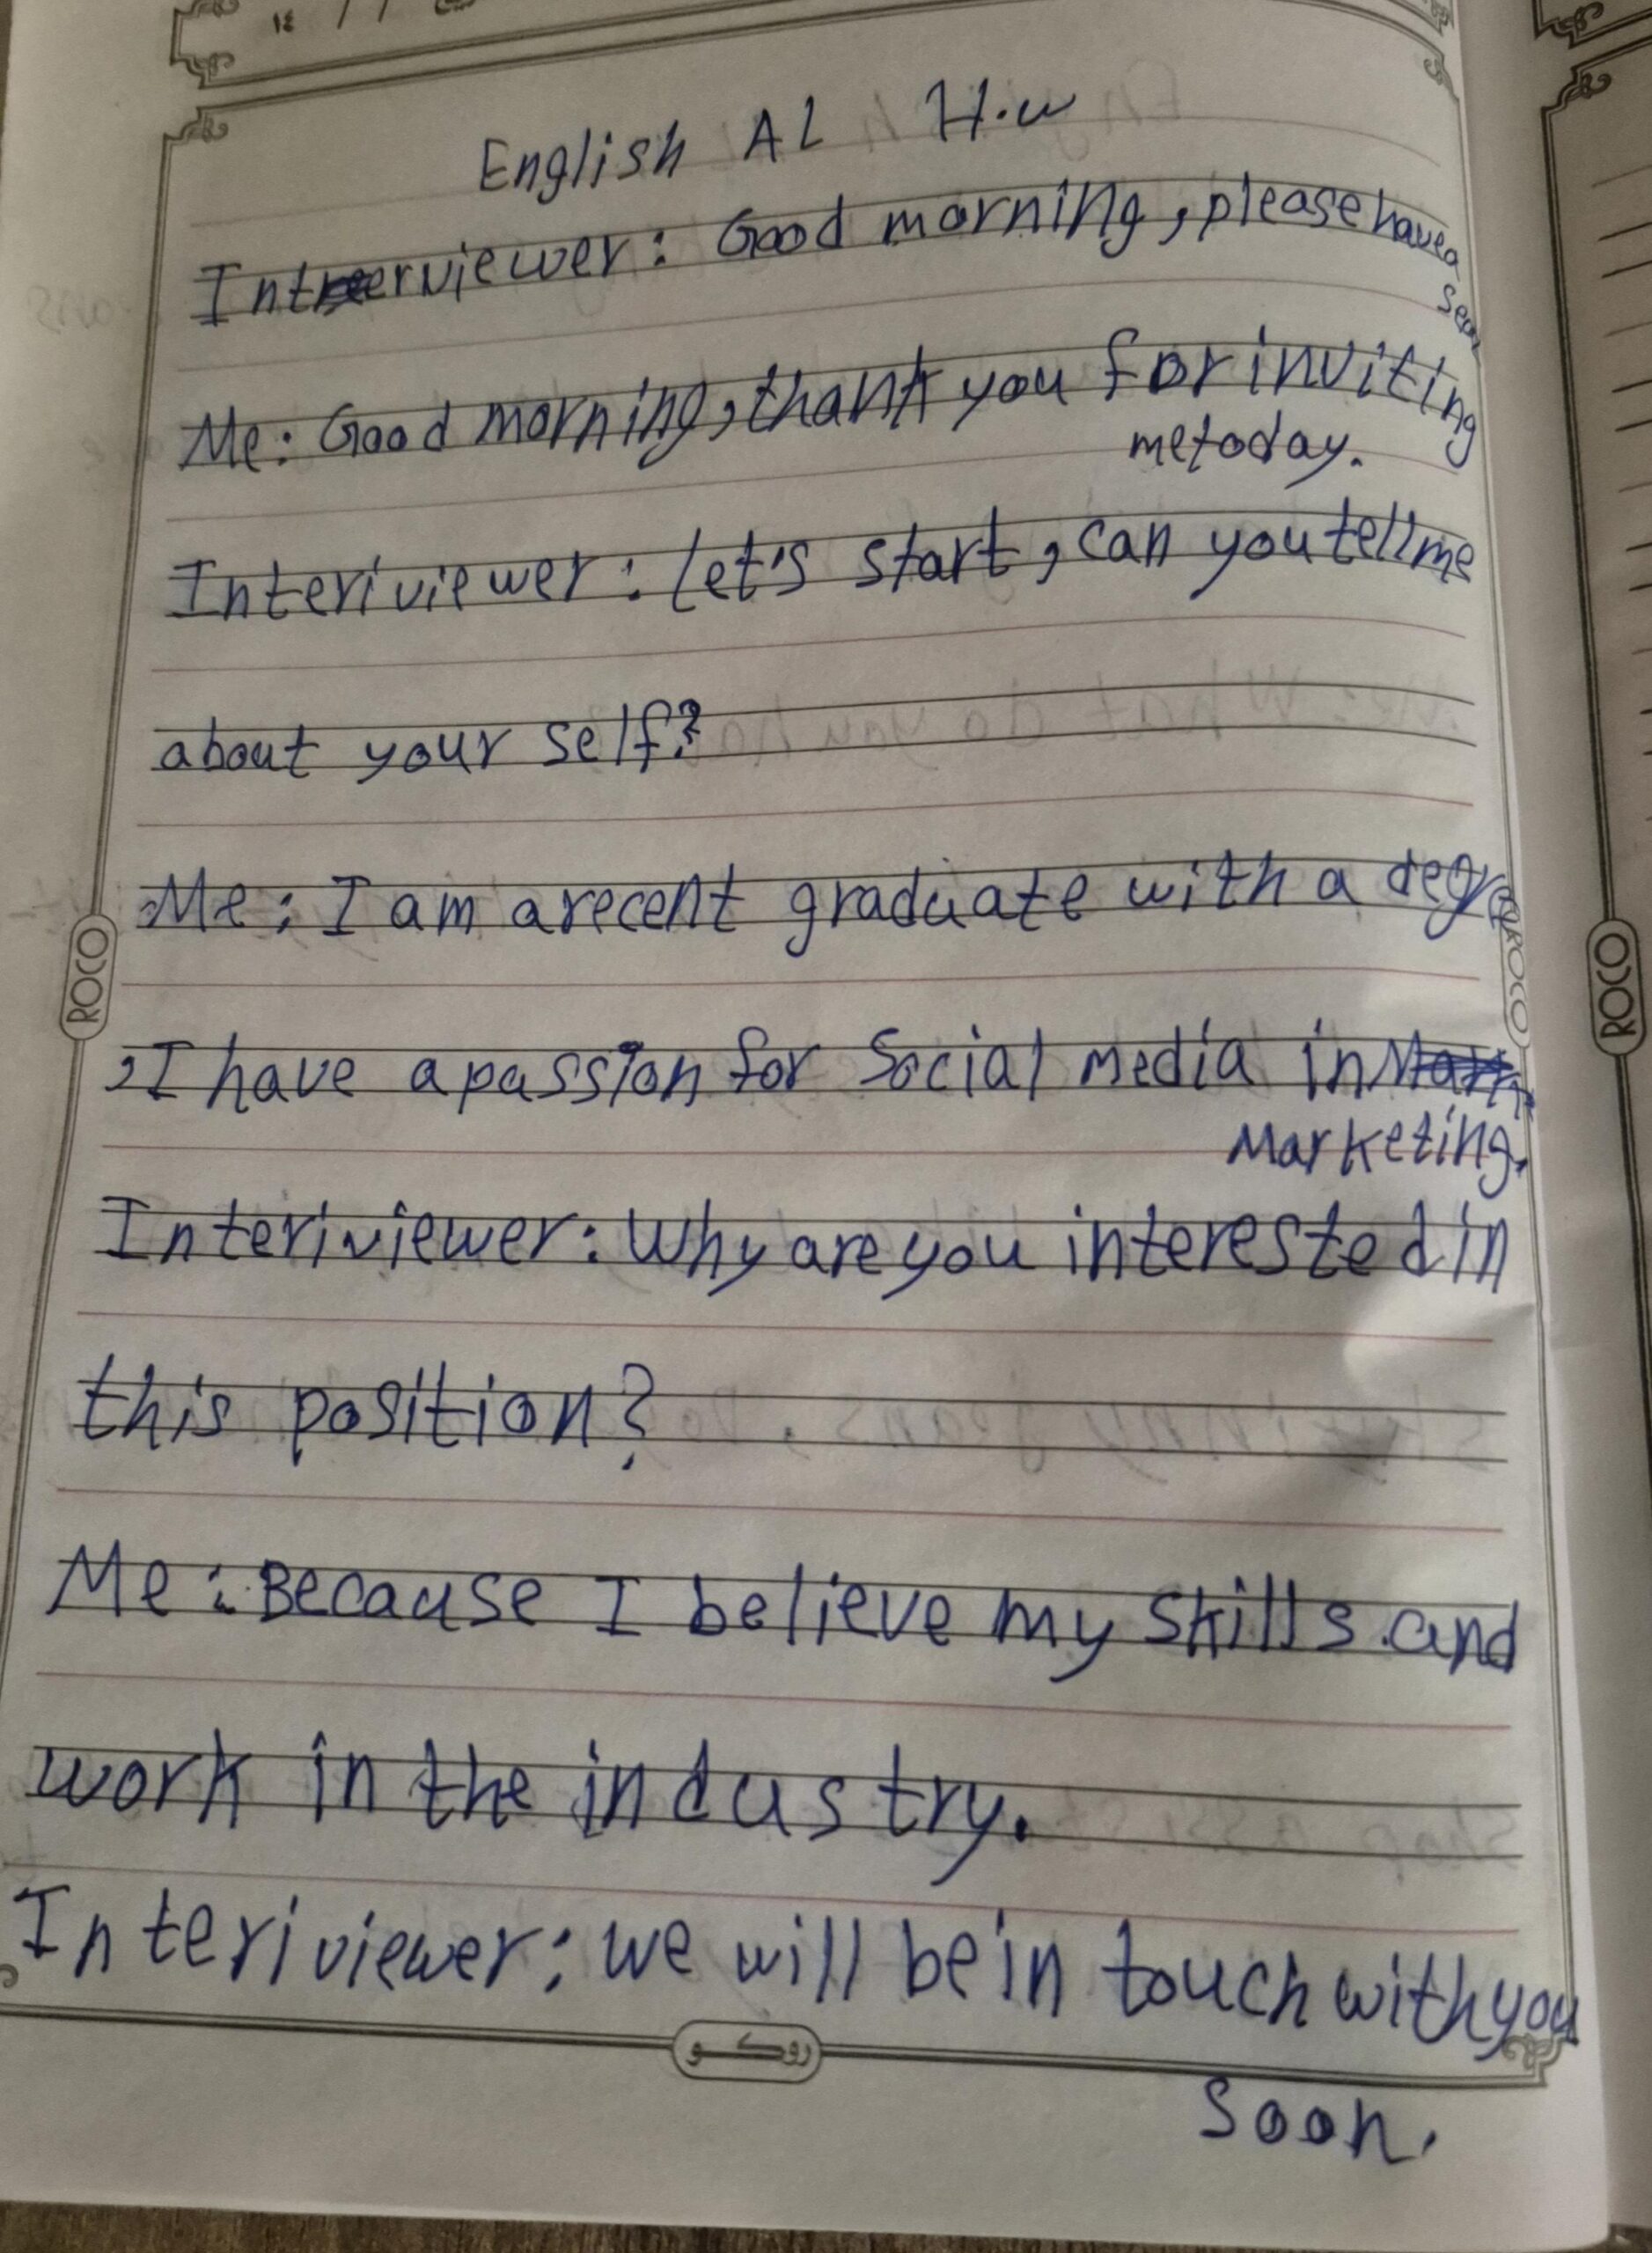 ١٤ / /
English AL H.w
Interviewer: Good morning, please have a
seat
Me: Good morning, thank you for inviting
me today.
Interiviewer: Let's start, can you tell me
about your self?
Me: I am a recent graduate with a degree
, I have a passion for Social media in
Marketing.
Interiviewer: Why are you interested in
this position?
Me: Because I believe my skills and
work in the industry.
Interiviewer: we will be in touch with you
soon.
ROCO
ROCO
ROCO
روكو